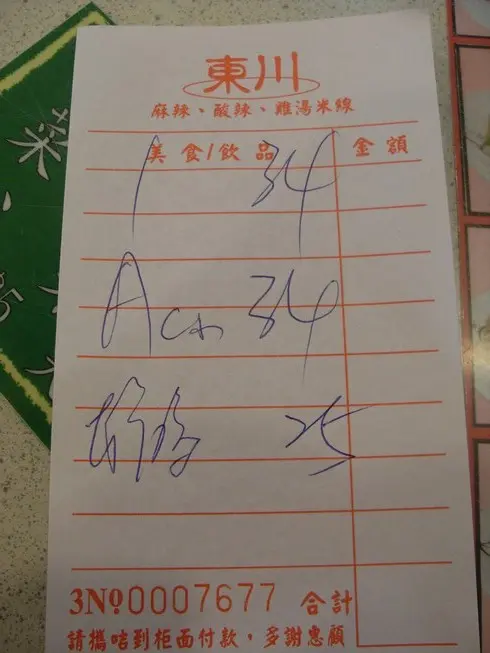 東川
麻辣、酸辣、雞湯米線
美食/飲品 金額
1 34
A 34
25
3Nº0007677 合計
請攜咭到柜面付款，多謝惠顧